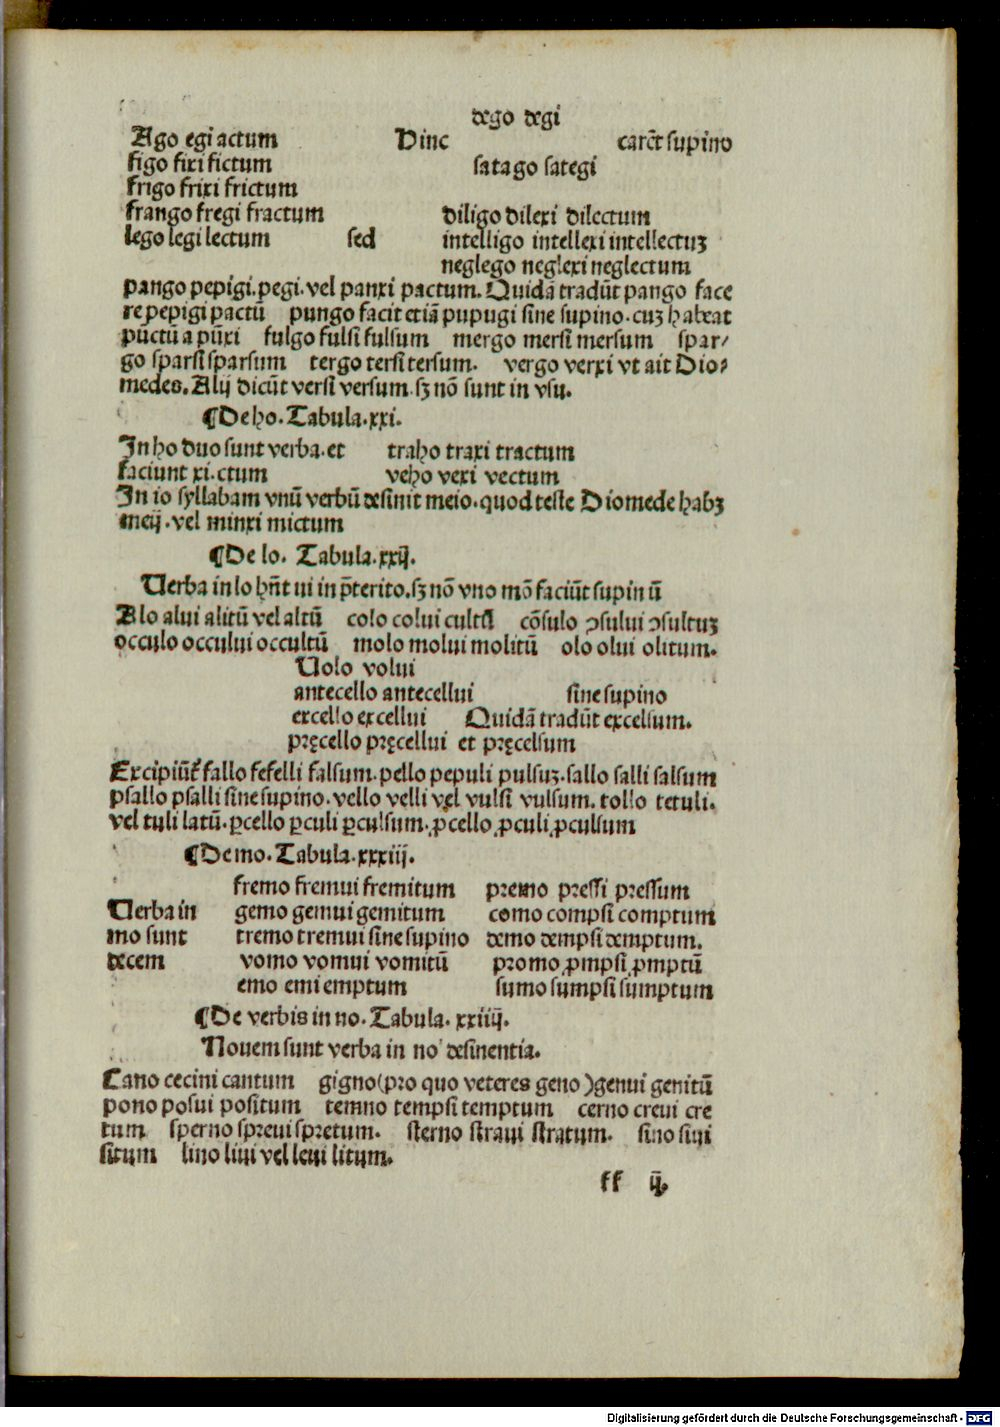 dego degi
Ago egi actum Hinc carēt supino
figo fixi fictum satago sategi
frigo frixi frictum
frango fregi fractum diligo dilexi dilectum
lego legi lectum sed intelligo intellexi intellectuꝫ
neglego neglexi neglectum
pango pepigi.pegi.vel panxi pactum. Quidā tradūt pango face
re pepigi pactū pungo facit etiā pupugi sine supino.cuꝫ habeat
pūctū a pūxi fulgo fulsi fulsum mergo mersi mersum spar⸗
go sparsi sparsum tergo tersi tersum. vergo verxi vt ait Dio⸗
medes. Alij dicūt versi versum.sꝫ nō sunt in vsu.
¶De ho. Tabula.xxi.
In ho duo sunt verba.et traho traxi tractum
faciunt xi.ctum veho vexi vectum
In io syllabam vnū verbū desinit meio.quod teste Diomede habꝫ
meij.vel minxi mictum
¶De lo. Tabula.xxij.
Verba in lo hn̄t ui in p̄terito.sꝫ nō vno mō faciūt supinū
Alo alui alitū vel altū colo colui cultū cōsulo ɔsului ɔsultuꝫ
occulo occului occultū molo molui molitū olo olui olitum.
Uolo volui
antecello antecellui sine supino
excello excellui Quidā tradūt excelsum.
pręcello pręcellui et pręcelsum
Excipiūt᷑ fallo fefelli falsum.pello pepuli pulsuꝫ.sallo salli salsum
psallo psalli sine supino.vello velli vel vulsi vulsum. tollo tetuli.
vel tuli latū.ꝑcello ꝑculi ꝑculsum.ꝓcello ꝓculi ꝓculsum
¶De mo. Tabula.xxxiij.
fremo fremui fremitum premo pressi pressum
Verba in gemo gemui gemitum como compsi comptum
mo sunt tremo tremui sine supino demo dempsi demptum.
decem vomo vomui vomitū promo ꝓmpsi ꝓmptū
emo emi emptum sumo sumpsi sumptum
¶De verbis in no. Tabula. xxiiij.
Nouem sunt verba in no desinentia.
Cano cecini cantum gigno(pro quo veteres geno)genui genitū
pono posui positum temno tempsi temptum cerno creui cre
tum sperno spreui spretum. sterno straui stratum. sino siui
situm lino liui vel leui litum.
ff ij.
Digitalisierung gefördert durch die Deutsche Forschungsgemeinschaft - DFG